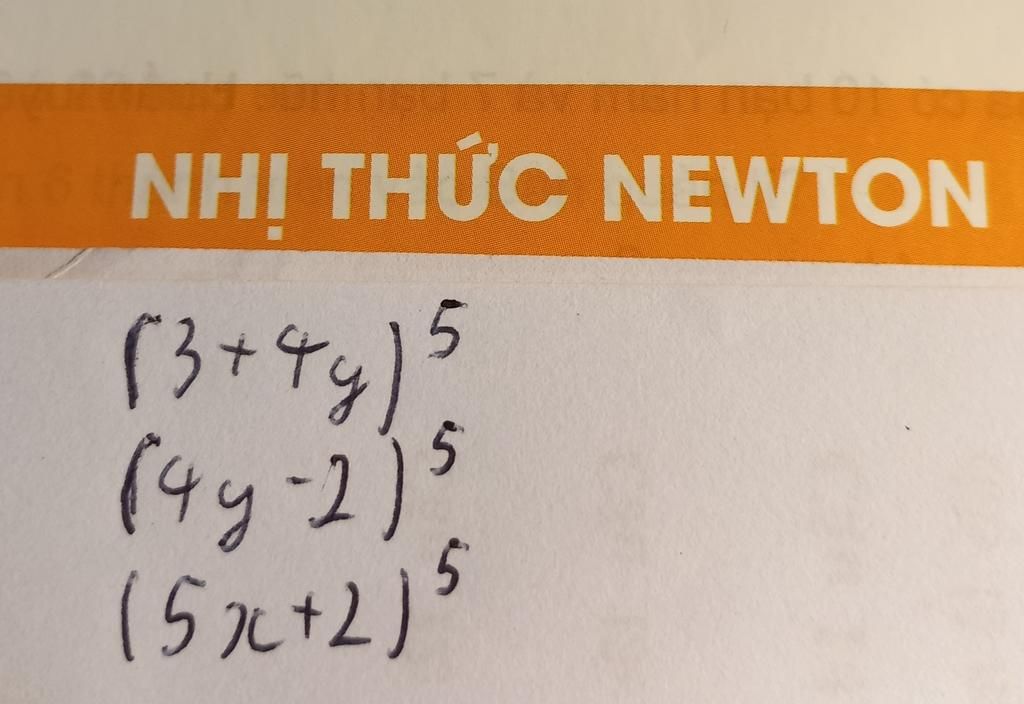 NHỊ THỨC NEWTON
(3+4y)⁵
(4y-2)⁵
(5x+2)⁵